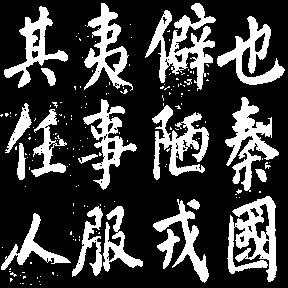 也秦國
僻陋戎
夷事服
其任人